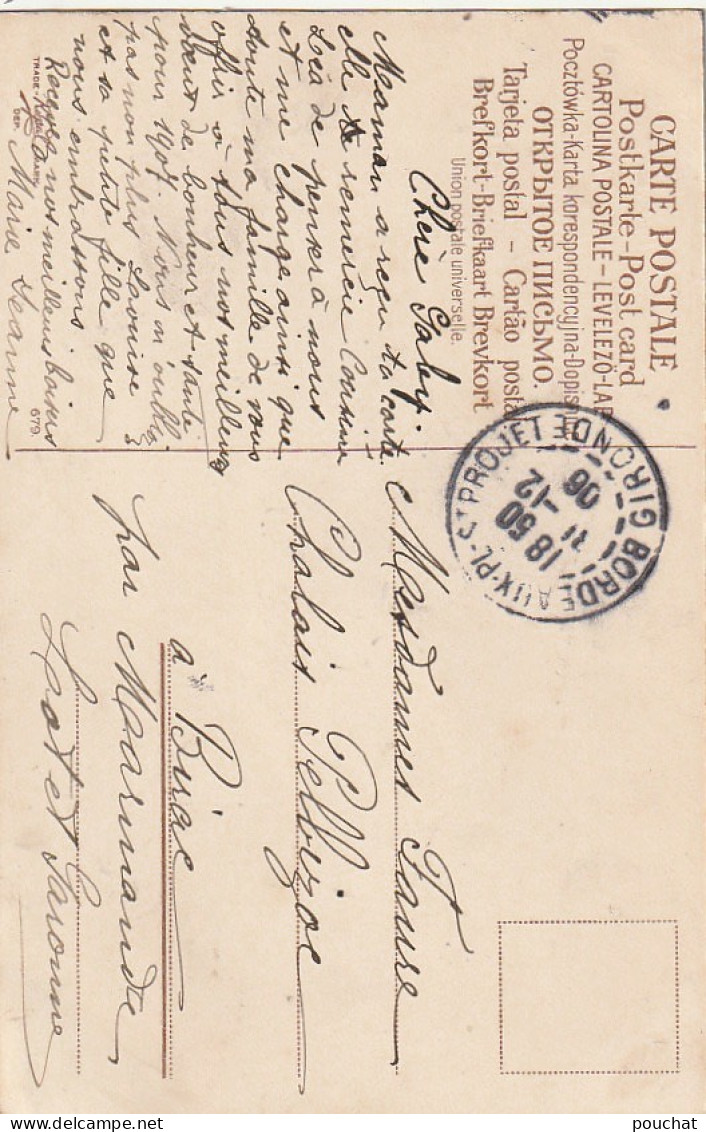 CARTE POSTALE
Postkarte – Post card
CARTOLINA POSTALE – LEVELEZÖ-LAP
Pocztówka-Karta korespondencyjna-Dopisnice
ОТКРЫТОЕ ПИСЬМО.
Tarjeta postal – Cartão postal
Brefkort-Briefkaart Brevkort
Union postale universelle.
Chère Gaby.
Maman a reçu ta carte
elle te remercie Cousine
Léa de penser à nous
et me charge ainsi que
toute ma famille de vous
offrir à tous nos meilleurs
vœux de bonheur et santé
pour 1907. Nous n'oublions
pas non plus Louise
et sa petite fille que
nous embrassons.
Recevez nos meilleurs baisers
Marie Jeanne
TRADE
DEP.
679.
BORDEAUX-PL. ST PROJET
GIRONDE
18 50
31 -12
06
Mesdames Faure
Chalais Pellejoc
à Birac
par Marmande
Lot et Garonne
pouchat